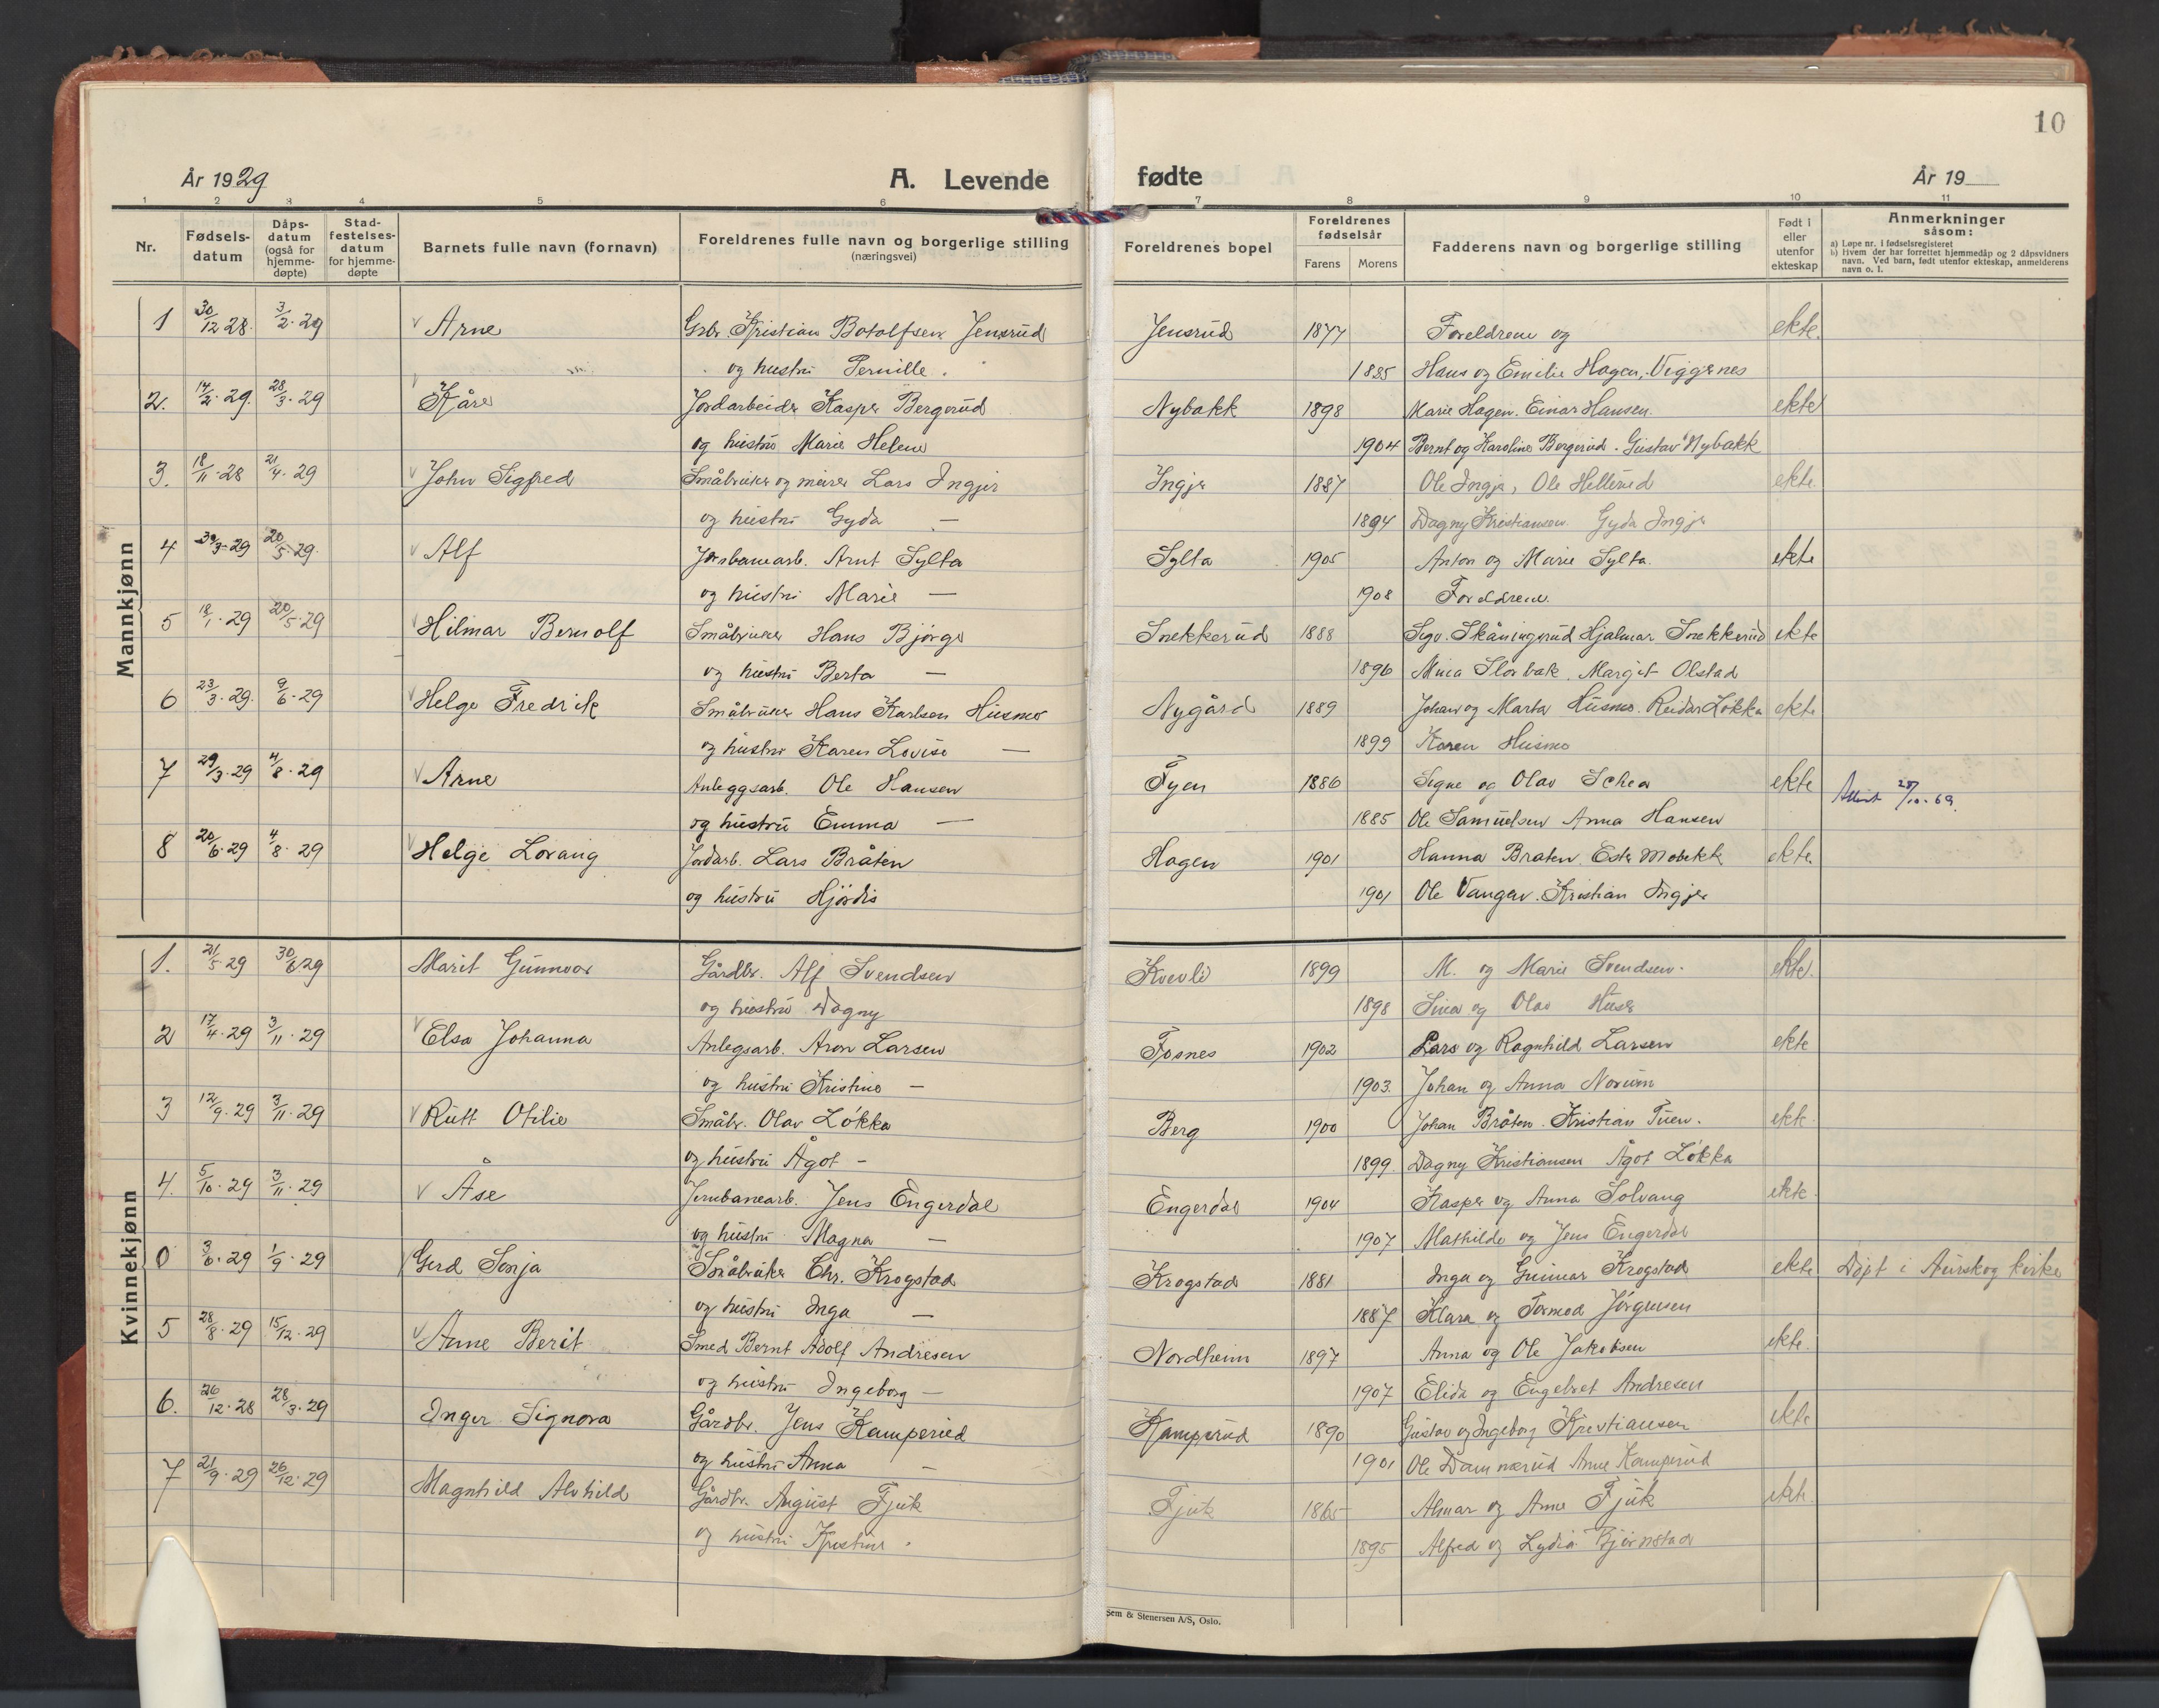 10
År 1929
A. Levende
fødte
År 19
1 2 3 4 5 6 7 8 9 10 11
Nr.
Fødsels-
datum
Dåps-
datum
(også for
hjemme-
døpte)
Stad-
festelses-
datum
for hjemme-
døpte
Barnets fulle navn (fornavn)
Foreldrenes fulle navn og borgerlige stilling
(næringsvei)
Foreldrenes bopel
Foreldrenes
fødselsår
Farens Morens
Fadderens navn og borgerlige stilling
Født i
eller
utenfor
ekteskap
Anmerkninger
såsom:
a) Løpe nr. i fødselsregisteret
b) Hvem der har forrettet hjemmedåp og 2 dåpsvidners
navn. Ved barn, født utenfor ekteskap, anmelderens
navn o. l.
Mannkjønn
1 30/12 28. 3/2. 29 Arne Grbr. Kristian Botolfsen Jensrud Jensrud 1877 Foreldrene og ekte.
og hustru Pernille. 1885 Hans og Emilie Hagen, Viggernes
2. 14/2. 29. 28/3. 29 Kåre Jordarbeider Kasper Bergerud Nybakk 1898 Marie Hagen. Einar Hansen. ekte
og hustru Marie Helene 1904 Bernt og Karoline Bergerud. Gustav Nybakk
3. 18/11. 28 21/4. 29 John Sigfred Småbruker og meier Lars Ingjer Ingjer 1887 Ole Ingjer, Ole Hellerud ekte.
og hustru Gyda — 1894 Dagny Kristiansen. Gyda Ingjer
4 30/3. 29 20/5. 29. Alf Jernbanearb. Arnt Sylta Sylta 1905 Anton og Marie Sylta. ekte
og hustru Marie — 1908 Foreldrene.
5 18/1. 29 20/5. 29 Hilmar Bernolf Småbruker Hans Bjørge Snekkerud 1888 Sigv. Skåningsrud Hjalmar Snekkerud ekte
og hustru Berta — 1896 Mina Slorbak. Margit Olstad
6 23/3. 29. 9/6. 29 Helge Fredrik Småbruker Hans Karlsen Husmo Nygård 1889 Johan og Marta Husmo. Reidar Løkka ekte
og hustru Karen Lovise — 1899 Karen Husmo
7 29/3. 29 4/8. 29 Arne Anleggsarb. Ole Hansen Tyen 1886 Signe og Olav Schea ekte Attest 28/10. 69.
og hustru Emma — 1885 Ole Samuelsen Anna Hansen
8 20/6. 29 4/8. 29 Helge Lovang Jordarb. Lars Bråten Hagen 1901 Hanna Bråten. Ester Mobekk ekte.
og hustru Hjördis 1901 Ole Vangen. Kristian Ingjer
Kvinnekjønn
1. 21/5. 29 30/6 29 Marit Gunnvor Gårdbr. Alf Svendsen Kvevli 1899 M. og Marie Svendsen. ekte.
og hustru Dagny 1898 Sina og Olav Huse
2 17/4. 29 3/11. 29 Elsa Johanna Anlegsarb. Aron Larsen Fosnes 1902 Lars og Ragnhild Larsen ekte
og hustru Kristine — 1903. Johan og Anna Norum
3 12/9. 29 3/11. 29 Rutt Otilie Småbr. Olav Løkka Berg 1900 Johan Bråten. Kristian Tuen. ekte
og hustru Ågot — 1899. Dagny Kristiansen Ågot Løkka
4. 5/10. 29 3/11. 29 Åse Jernbanearb. Jens Engerdal Engerdal 1904 Kasper og Anna Solvang ekte
og hustru Magna — 1907 Mathilde og Jens Engerdal
0 3/6. 29 1/9. 29 Gerd Sonja Småbruker Chr. Krogstad Krogstad 1881 Inga og Gunnar Krogstad ekte Døpt i Aurskog kirke
og hustru Inga — 1887 Klara og Tormod Jørgensen
5 28/8. 29 15/12. 29 Anne Berit Smed Bernt Adolf Andresen Nordheim 1897 Anna og Ole Jakobsen ekte.
og hustru Ingeborg — 1907 Elida og Engebret Andresen
6. 26/12. 28 28/3. 29 Inger Signora Gårdbr. Jens Kamperud Kamperud 1890 Gustav og Ingeborg Kristiansen ekte
og hustru Anna — 1901 Ole Damnærud Anne Kamperud
7 21/9. 29 26/12. 29 Magnhild Alvhild Gårdbr. August Fjuk Fjuk 1865 Almar og Anne Fjuk ekte.
og hustru Kristine. 1895 Alfred og Lydia Bjørnstad
Sem & Stenersen A/S, Oslo.